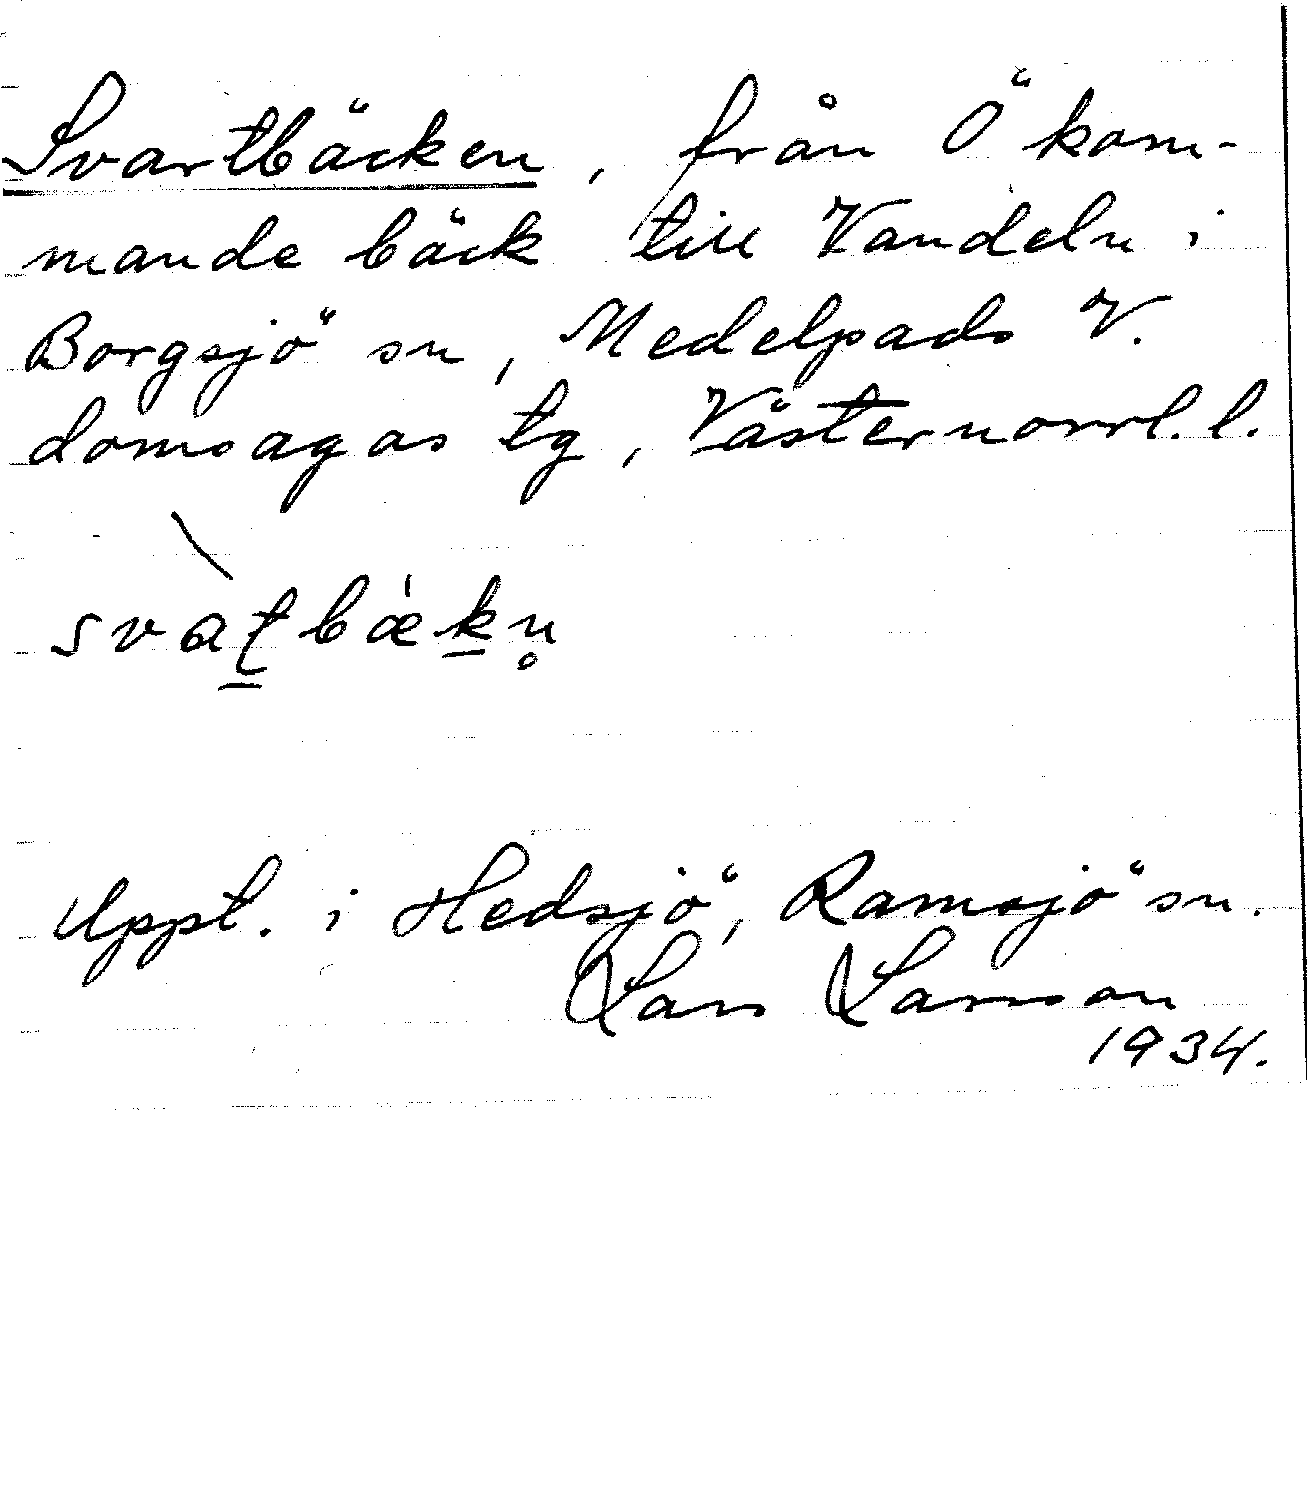 Svartbäcken, från Ö kom-
mande bäck till Vandeln i
Borgsjö sn, Medelpads V.
domsagas tg, Västernorrl. l.
svaʈbæ̀kn̥
Uppt. i Hedsjö, Ramsjö sn.
Lars Larsson
1934.